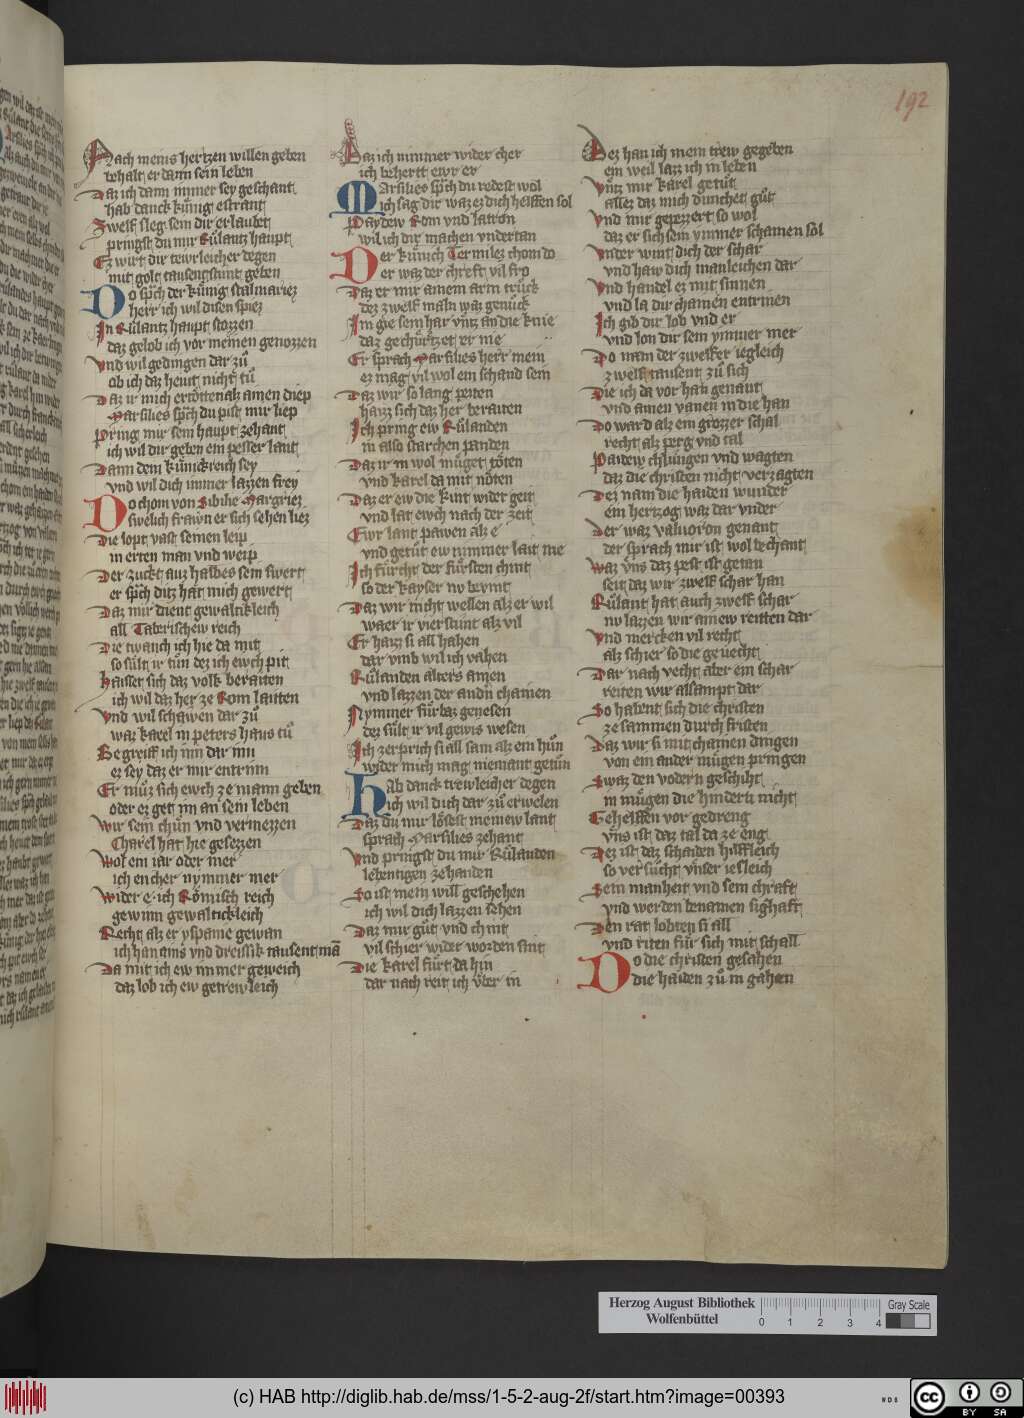 192
Nach meins hertzen willen geben
behalt er dann sein leben
Daz ich dann immer sey geschant
hab danck künig estrant
Zwelf sleg sein dir erlaubet
pringst du mir Růlantz haupt
Ez wirt dir tewrleicher degen
mit golt tausentstunt geben
Do sp̄ch der künig stalmariez
herr ich wil disen spiez
In Růlantz haupt stozzen
daz gelob ich vor meinen genozzen
Vnd wil gedingen dar zů
ob ich daz heut nicht tů
Daz ir mich ertöttent alz amen diep
Marsilies sp̄ch du pist mir liep
Pring mir sein haupt zehant
ich wil dir geben ein pesser lant
Dann dein künickreich sey
vnd wil dich immer lazzen frey
Do chom von Sibilie Margriez
swelich frawn er sich sehen liez
Die lopt vast seinen leip
in erten man vnd weip
Der zuckt auz halbes sein swert
er sp̄ch ditz hat mich gewert
Daz mir dient gewaltikleich
all Taberischew reich
Die twanch ich hie da mit
so sült ir tůn dez ich ewch pit
haisset sich daz volk beraiten
ich wil daz her ze Rom laitten
Vnd wil schawen dar zů
waz karel in peters haus tů
Begreiff ich in dar inn
ez sey daz er mir entrinn
Er můz sich ewch ze mann geben
oder ez get im an sein leben
Wir sein chůn vnd vermezzen
Charel hat hie gesezzen
Wol ein iar oder mer
ich encher nymmer mer
Wider e ich Römisch reich
gewinn gewaltickleich
Recht alz er yspanie gewan
ich han ains vnd dreissik tausent mā
Da mit ich ew nimmer geweich
daz lob ich ew getrewleich
Daz ich nimmer wider cher
ich behertt ewr er
Marsilies sp̄ch du redest wol
ich sag dir waz ez dich helffen sol
Paydew Rom vnd latron
wil ich dir machen vndertan
Der künich Cermilez chom do
er waz der chreft vil fro
Daz er mir ainem arm trück
dez zwelf maln waz genůck
Im gie sein har vntz an die knie
daz gechürtzet er nie
Er sprach Marsilies herr mein
ez mag vil wol ein schand sein
Daz wir so lang peiten
haizz sich daz her beraiten
Ich pring ew Růlanden
in also starchen panden
Daz ir in wol müget töten
vnd karel da mit nöten
Daz er ew die kint wider geit
vnd lat ewch nach der zeit
Ewr lant pawen alz e
vnd getůt ew nimmer lait me
Ich fürcht der fürsten chint
so der kayser nv beynt
Daz wir nicht wellen alz er wil
waer ir vier stunt alz vil
Er haizz si all hahen
dar vmb wil ich vahen
Růlanden alters ainen
vnd lazzen der andn̄ chainen
Nymmer fürbaz genesen
dez sült ir vil gewis wesen
Ich zerprich si all sam alz ein hůn
wider mich mag niemant getůn
Hab danck trewleicher degen
ich wil dich dar zů erwelen
Daz du mir lösest meinew lant
sprach Marsilies zehant
Vnd pringst du mir Růlanden
lebentigen zehanden
So ist mein will geschehen
ich wil dich lazzen sehen
Daz mir gůt vnd chint
vil schier wider worden sint
Die karel fürt da hin
dar nach reit ich vber in
Dez han ich mein trew gegeben
ein weil lazz ich in leben
Vntz mir karel getůt
allez daz mich dunchet gůt
Vnd mir gepezzert so wol
daz er sich sein ymmer schamen sol
Vnder wint dich der schar
vnd haw dich manleichen dar
Vnd handel ez mit sinnen
vnd la dir chainen entrinen
Ich gib dir lob vnd er
vnd lon dir sein ymmer mer
Do nam der zwelfer iegleich
zwelf tausent zů sich
Die ich da vor han genant
vnd ainen vanen in die han
Do ward alz ein grozzer schal
recht alz perg vnd tal
Paidew chlungen vnd wagten
daz die christen nicht verzagten
Dez nam die haiden wunder
ein hertzog waz dar vnder
Der waz valuoron genant
der sprach mir ist wol bechant
Waz vns daz pest ist getan
seit daz wir zwelf schar han
Růlant hat auch zwelf schar
nv lazzen wir ainew reitten dar
Vnd mercken vil recht
alz schier so die geuecht
Dar nach vecht aber ein schar
reiten wir allsampt dar
So habent sich die christen
zesammen durch fristen
Daz wir si mit chainen dingen
von ein ander mügen pringen
Swaz den vodern geschiht
in mügen die hindern nicht
Gehelffen vor gedreng
vns ist daz tal da ze eng
Dez ist daz schaiden hilffleich
so versůcht vnser iesleich
Sein manheit vnd sein chraft
vnd werden benamen sighaft
Den rat lobten si all
vnd riten für sich mit schall
Do die christen gesahen
die haiden zů in gahen
Herzog August Bibliothek
Wolfenbüttel
0 1 2 3 4
Gray Scale
(c) HAB http://diglib.hab.de/mss/1-5-2-aug-2f/start.htm?image=00393
WDB
cc
BY SA